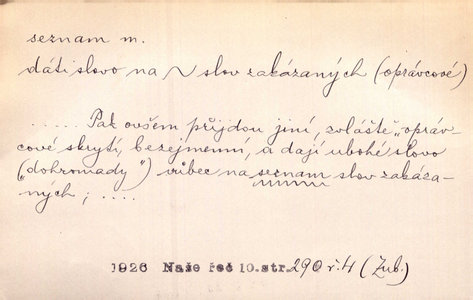 seznam m.
dáti slovo na ~ slov zakázaných (oprávcové)
..... Pak ovšem přijdou jiní, zvláště „opráv-
cové skrytí, bezejmenní, a dají ubohé slovo
(„dohromady") vůbec na seznam slov zakáza-
ných; ....
1926 Naše řeč 10. str. 290 ř. 4 (Zub.)